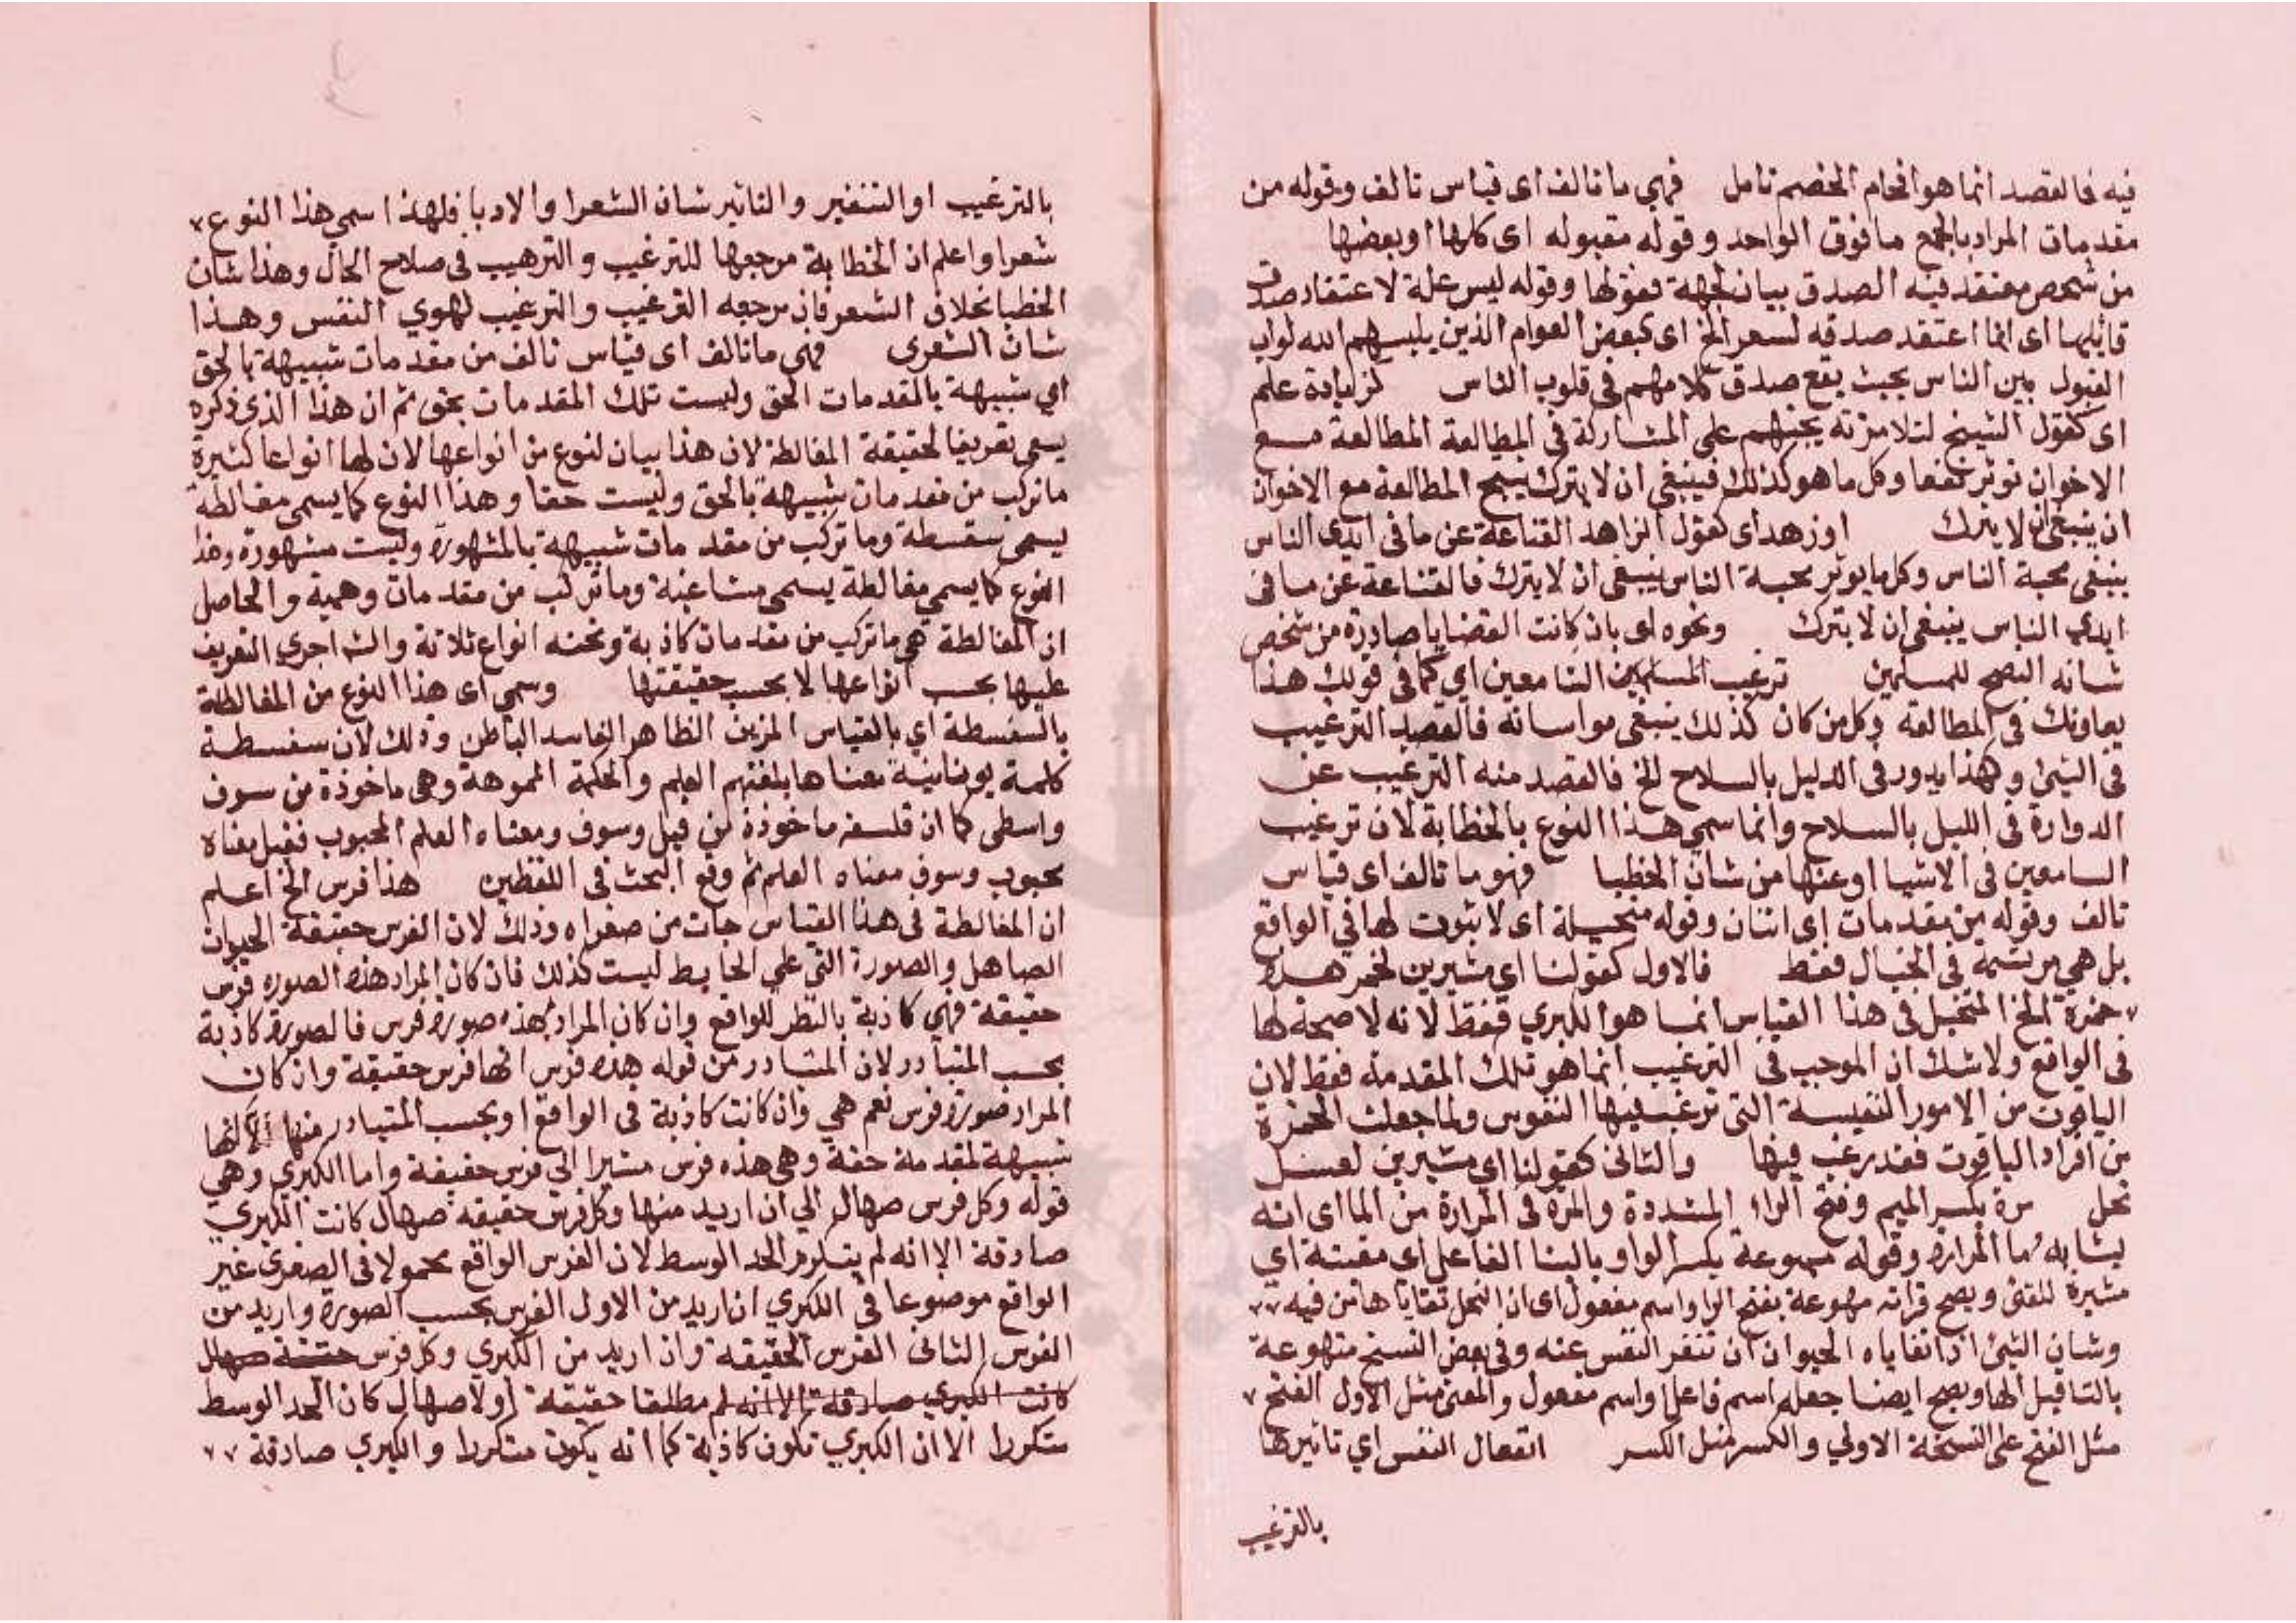 فيه فالقصد انما هو افحام الخصم تامل فهي ما تالف اى قياس تالف وقوله من
مقدمات المراد بالجمع ما فوق الواحد وقوله مقبوله اى كلها او بعضها
من شخص معتقد فيه الصدق بيان لجهة قبولها وقوله ليس علة لاعتقاد صدق
قايلها اى انما اعتقد صدقه لسعر الخ اى كبعض العوام الذين يلبسهم الله ثواب
القبول بين الناس بحيث يقع صدق كلامهم فى قلوب الناس كزيادة علم
اى كقول الشيخ لتلامزته يحثهم على المشاركة فى المطالعة المطالعة مع
الاخوان توثر نفعا وكل ما هو كذلك فينبغى ان لا يترك ينتج المطالعة مع الاخوان
ان ينبغى ان لا يترك اوزهد اى كقول الزاهد القناعة عن ما فى ايدى الناس
ينبغى محبة الناس وكل ما يوثر محبة الناس ينبغى ان لا يترك فالقناعة عن ما فى
ايدي الناس ينبغى ان لا يترك ونحوه اى بان كانت القضايا صادرة من شخص
شانه النصح للمسلمين ترغيب السامعين اي كما فى قولك هذا
يعاونك فى المطالعة وكل من كان كذلك ينبغى مواساته فالقصد الترغيب
فى الشئ وهذا يدور فى الليل بالسلاح الخ فالقصد منه الترغيب عن
الدوارة فى الليل بالسلاح وانما سمي هذا النوع بالخطابة لان ترغيب
السامعين فى الاشيا او عنها من شان الخطبا فهو ما تالف اى قياس
تالف وقوله من مقدمات اى اثنان وقوله متخيلة اى لا ثبوت لها في الواقع
بل هي مرتسمة فى الخيال فقط فالاول كقولنا اي مشيرين لخمر هذه
خمرة الخ المتخيل فى هذا القياس انما هو الكبري فقط لانه لا صحة لها
فى الواقع ولا شك ان الموجب فى الترغيب انما هو تلك المقدمة فقط لان
الياقوت من الامور النفيسة التى ترغب فيها النفوس ولما جعلت الخمرة
من افراد الياقوت فقد رغب فيها والثانى كقولنا اي مشيرين لعسل
نحل مرة بكسر الميم وفتح الراء المشددة والمرة فى المرارة من الما اى انه
يشابه ما المرارة وقوله مهوعة بكسر الواو بالبنا الفاعل اى مقيئة اي
مشيرة للقئ ويصح قراته مهوعة بفتح الواو اسم مفعول اى ان النحل تقاياها من فيه
وشان الشئ اذا تقاياه الحيوان ان تنفر النفس عنه وفى بعض النسخ متهوعة
بالتا قبل الها ويصح ايضا جعله اسم فاعل واسم مفعول والمعنى مثل الاول الفتح
مثل الفتح على النسخة الاولي والكسر مثل الكسر انفعال النفس اي تاثيرها
بالترغيب
بالترغيب او التنفير والتاثير شان الشعرا والادبا فلهذا اسمي هذا النوع
شعرا واعلم ان الخطابة مرجعها للترغيب والترهيب فى صلاح الحال وهذا شان
الخطبا بخلاف الشعر فان مرجعه الترغيب والترغيب لهوي النفس وهذا
شان الشعرى فهى ما تالف اى قياس تالف من مقدمات شبيهة بالحق
اي شبيهة بالمقدمات الحق وليست تلك المقدمات بحق ثم ان هذا الذى ذكره
يسمى تعريفا لحقيقة المغالطة لان هذا بيان لنوع من انواعها لان لها انواعا كثيرة
ما تركب من مقدمات شبيهة بالحق وليست حقا وهذا النوع كما يسمى مغالطة
يسمى سفسطة وما تركب من مقدمات شبيهة بالمشهورة وليست مشهورة وهذا
النوع كما يسمي مغالطة يسمى مشاغبة وما تركب من مقدمات وهمية والحاصل
ان المغالطة هى ما تركب من مقدمات كاذبة وتحته انواع ثلاثة والش اجري التعريف
عليها بحسب انواعها لا بحسب حقيقتها وسمي اى هذا النوع من المغالطة
بالسفسطة اي بالقياس المزين الظاهر الفاسد الباطن وذلك لان سفسطة
كلمة يونانية معناها بلغتهم العلم والحكمة المموهة وهى ماخوذة من سوف
واسطى كما ان فلسفه ماخوذة من فيل وسوف ومعناه العلم المحبوب ففيل معناه
محبوب وسوف معناه العلم ثم وقع البحث فى اللفظين هذا فرس الخ اعلم
ان المغالطة فى هذا القياس جات من صغراه وذلك لان الفرس حقيقة الحيوان
الصاهل والصورة التى على الحايط ليست كذلك فان كان المراد هذه الصوره فرس
حقيقة فهى كاذبة بالنظر للواقع وان كان المراد بهذه صورة فرس فالصورة كاذبة
بحسب المتبادر لان المتبادر من قوله هذه فرس انها فرس حقيقة وان كان
المراد صورة فرس نعم هي وان كانت كاذبة فى الواقع او بحسب المتبادر منها الا انها
شبيهة لمقدمة حقة وهى هذه فرس مشيرا الى فرس حقيقة واما الكبري وهي
قوله وكل فرس صهال الي ان اريد منها وكل فرس حقيقة صهال كانت الكبري
صادقة الا انه لم يتكرر الحد الوسط لان الفرس الواقع محمولا فى الصغرى غير
الواقع موضوعا فى الكبري ان اريد من الاول الفرس بحسب الصورة واريد من
الفرس الثانى الفرس الحقيقة وان اريد من الكبري وكل فرس حقيقة صهال
كانت الكبري صادقة الا انه لم مطلقا حقيقة اولا صهال كان الحد الوسط
متكررا الا ان الكبري تكون كاذبة كما انه يكون متكررا والكبري صادقة